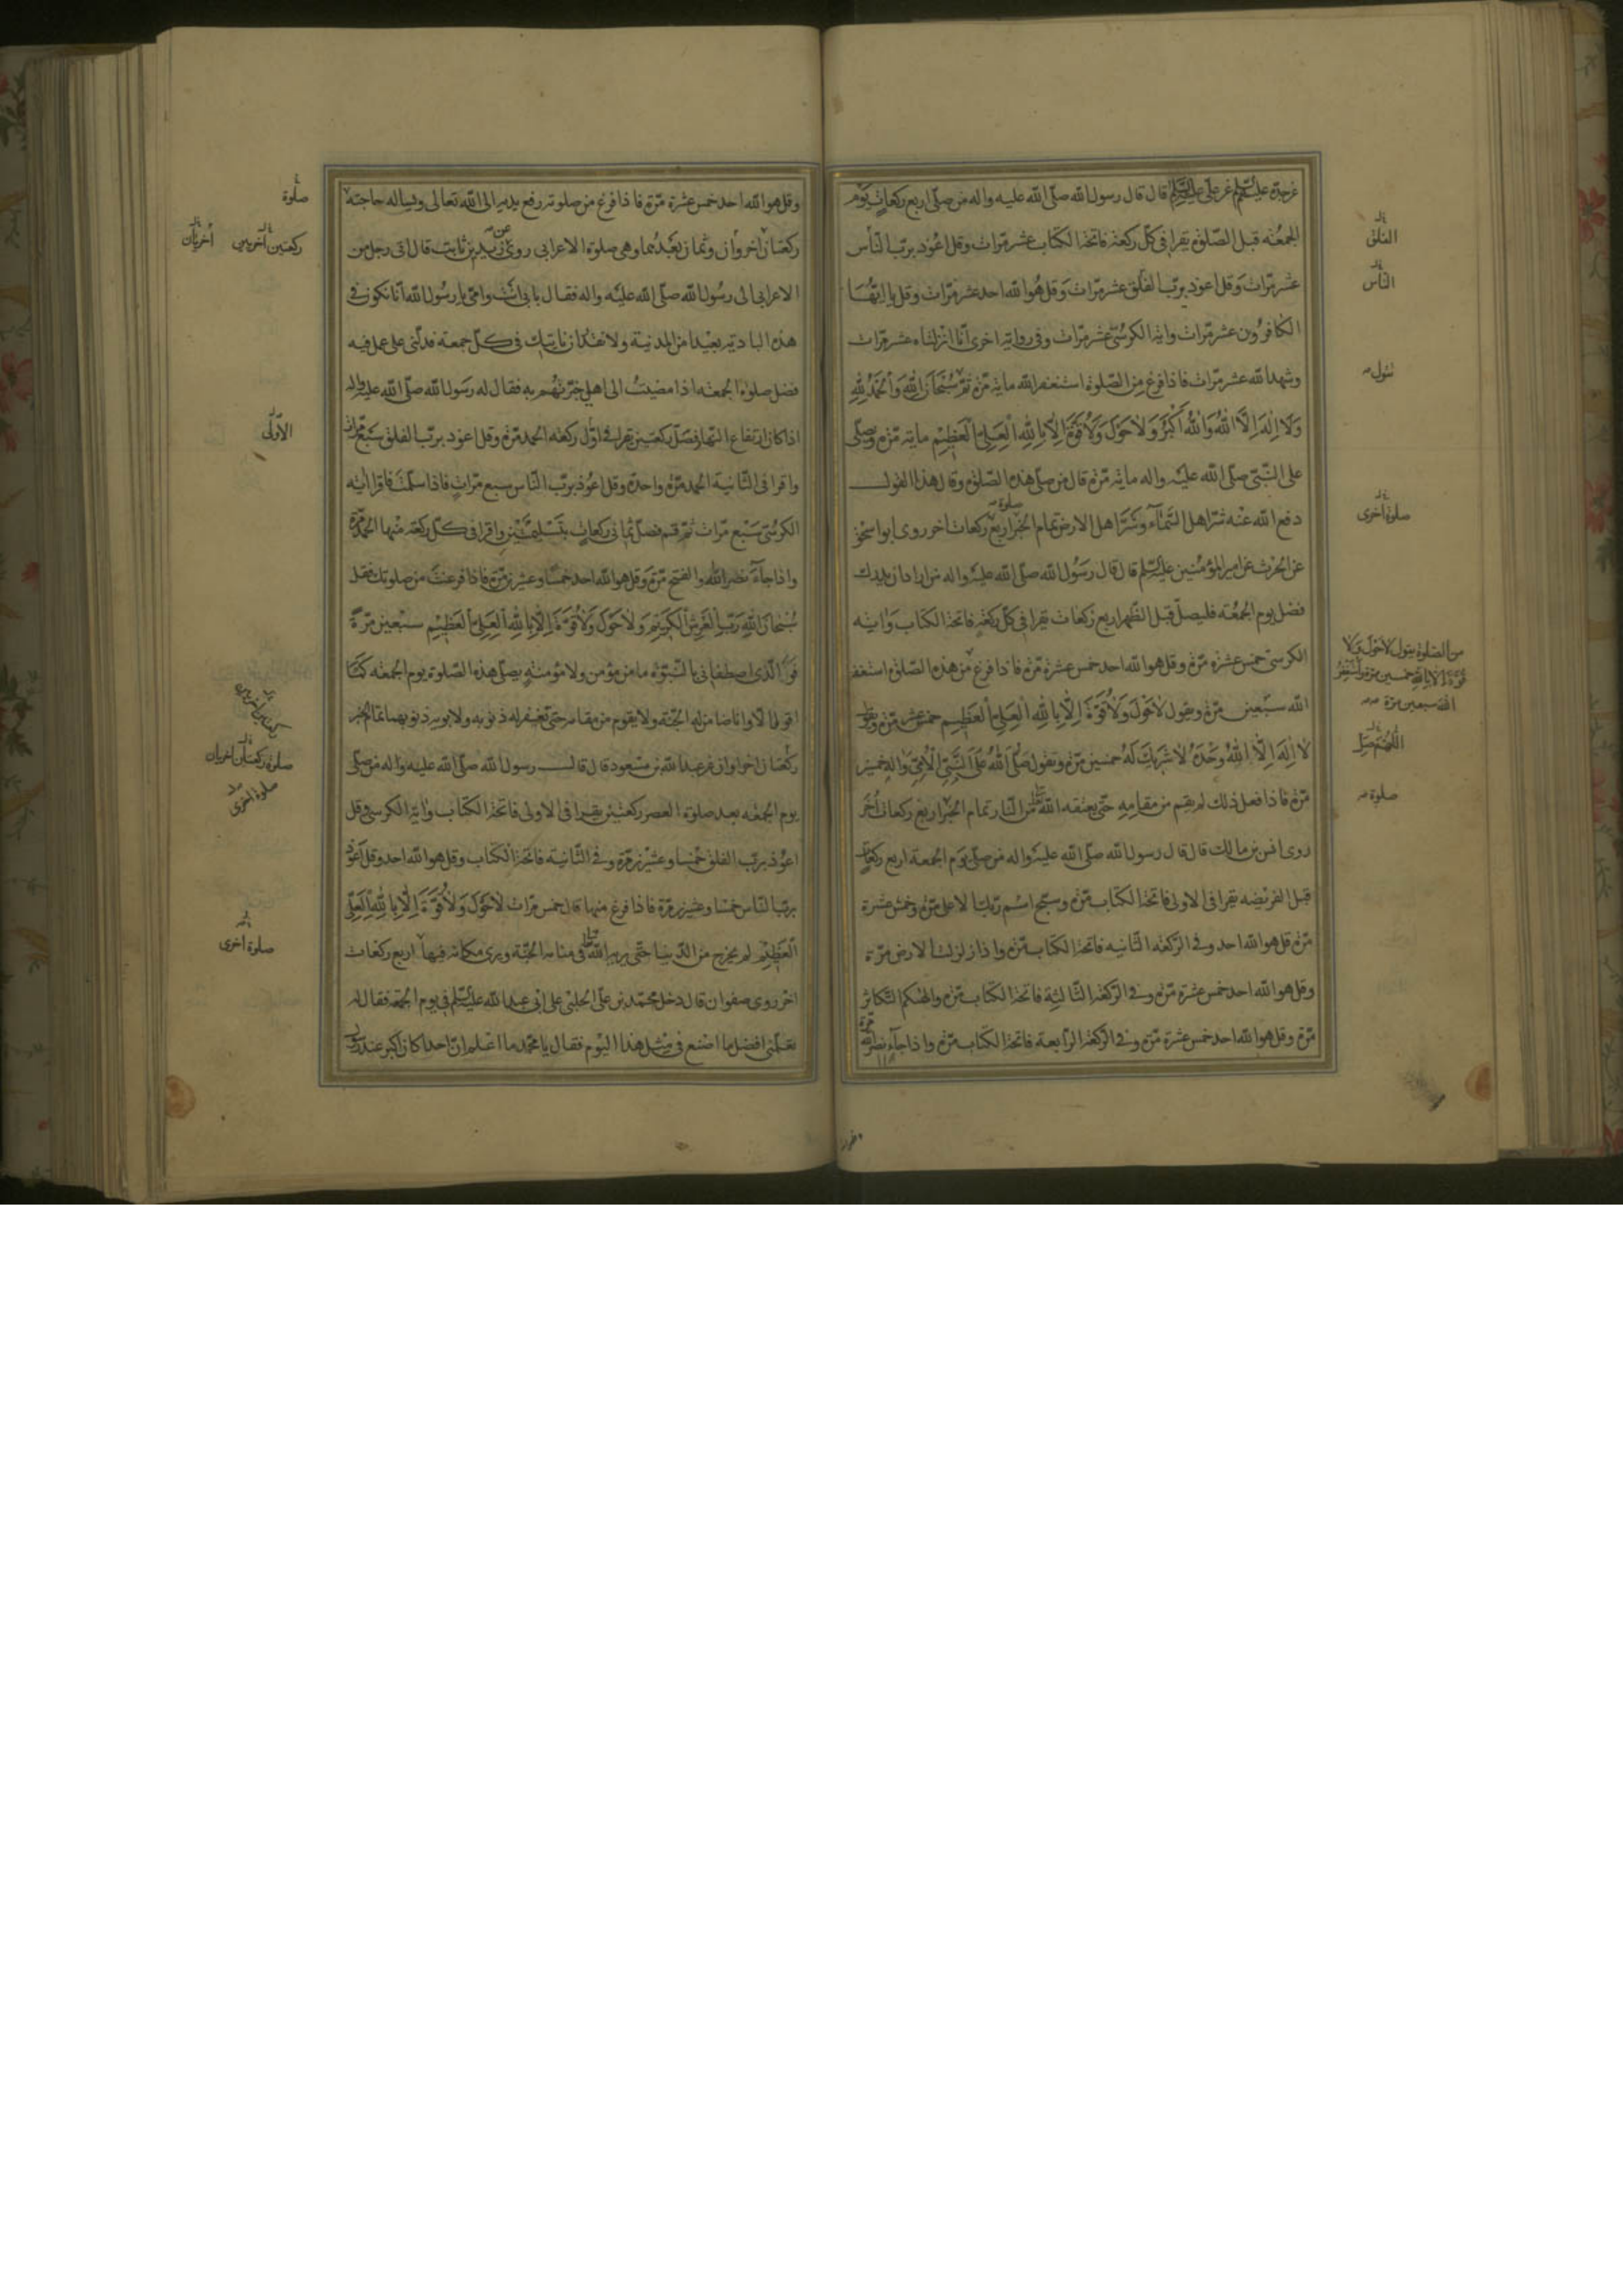 عن جده عليهم السلام عن علي عليه السلام قال قال رسول الله صلى الله عليه واله من صلى اربع ركعات يوم
الجمعة قبل الصلوة يقرا في كل ركعة فاتحة الكتاب عشر مرات وقل اعوذ برب الناس
عشر مرات وقل اعوذ برب الفلق عشر مرات وقل هو الله احد عشر مرات وقل يا ايها
الكافرون عشر مرات واية الكرسي عشر مرات وفي رواية اخرى انا انزلناه عشر مرات
وشهد الله عشر مرات فاذا فرغ من الصلوة استغفر الله ماية مرة ثم سبحان الله والحمد لله
ولا اله الا الله والله اكبر ولا حول ولا قوة الا بالله العلي العظيم ماية مرة ويصلي
على النبي صلى الله عليه واله ماية مرة قال من صلى هذه الصلوة وقال هذا القول
دفع الله عنه شر اهل السماء وشر اهل الارض تمام الخبر اربع ركعات اخر روى ابو اسحق
عن الحرث عن امير المؤمنين عليه السلم قال قال رسول الله صلى الله عليه واله من اراد ان يدرك
فضل يوم الجمعة فليصل قبل الظهر اربع ركعات يقرا في كل ركعة فاتحة الكتاب واية
الكرسي خمس عشرة مرة وقل هو الله احد خمس عشرة مرة فاذا فرغ من هذه الصلوة استغفر
الله سبعين مرة ويقول لا حول ولا قوة الا بالله العلي العظيم خمس عشر مرة ويقول
لا اله الا الله وحده لا شريك له خمسين مرة وتقول صلى الله على النبي الامي واله خمسين
مرة فاذا فعل ذلك لم يقم من مقامه حتى يعتقه الله من النار تمام الخبر اربع ركعات اخر
روى انس بن مالك قال قال رسول الله صلى الله عليه واله من صلى يوم الجمعة اربع ركعات
قبل الفريضة يقرا في الاولى فاتحة الكتاب مرة وسبح اسم ربك الاعلى مرة وخمس عشرة
مرة قل هو الله احد وفي الركعة الثانية فاتحة الكتاب مرة واذا زلزلت الارض مرة
وقل هو الله احد خمس عشرة مرة وفي الركعة الثالثة فاتحة الكتاب مرة والهيكم التكاثر
مرة وقل هو الله احد خمس عشرة مرة وفي الركعة الرابعة فاتحة الكتاب مرة واذا جاء نصر الله مرة
الفلق
الناس
صلوة اخرى
من الصلوة يقول لا حول ولا
قوة الا بالله خمسين مرة ويستغفر
الله سبعين مرة
اللهم صل
صلوة
وقل هو الله احد خمس عشرة مرة فاذا فرغ من صلوته رفع يديه الى الله تعالى ويساله حاجته
ركعتان اخروان وثمان بعدهما وهي صلوة الاعرابي روى عن زيد بن ثابت قال اتى رجل من
الاعراب الى رسول الله صلى الله عليه واله فقال بابي انت وامي يا رسول الله انا نكون في
هذه البادية بعيدا من المدينة ولا نقدر ان ناتيك في كل جمعة فدلني على عمل فيه
فضل صلوة الجمعة اذا مضيت الى اهلي خبرتهم به فقال له رسول الله صلى الله عليه واله
اذا كان ارتفاع النهار فصل ركعتين تقرا في اول ركعة الحمد مرة وقل اعوذ برب الفلق سبع مرات
واقرا في الثانية الحمد مرة واحدة وقل اعوذ برب الناس سبع مرات فاذا سلمت فاقرا اية
الكرسي سبع مرات ثم قم فصل ثماني ركعات بتسليمتين واقرا في كل ركعة منها الحمد مرة
واذا جاء نصر الله والفتح مرة وقل هو الله احد خمسا وعشرين مرة فاذا فرغت من صلوتك فقل
سبحان الله رب العرش الكريم ولا حول ولا قوة الا بالله العلي العظيم سبعين مرة
فو الذي اصطفاني بالنبوة ما من مؤمن ولا مؤمنة يصلي هذه الصلوة يوم الجمعة كما
اقول الا وانا ضامن له الجنة ولا يقوم من مقامه حتى يغفر له ذنوبه ولابويه ذنوبهما تمام الخبر
ركعتان اخراوان عن عبد الله بن مسعود قال قال رسول الله صلى الله عليه واله من صلى
يوم الجمعة بعد صلوة العصر ركعتين يقرا في الاولى فاتحة الكتاب واية الكرسي وقل
اعوذ برب الفلق خمسا وعشرين مرة وفي الثانية فاتحة الكتاب وقل هو الله احد وقل اعوذ
برب الناس خمسا وعشرين مرة فاذا فرغ منها قال خمس مرات لا حول ولا قوة الا بالله العلي
العظيم لم يخرج من الدنيا حتى يريه الله في منامه الجنة ويرى مكانه فيها اربع ركعات
اخر روى صفوان قال دخل محمد بن علي الحلبي على ابي عبد الله عليه السلم في يوم الجمعة فقال له
تعلمني افضل ما اصنع في مثل هذا اليوم فقال يا محمد ما اعلم ان احدا كان اكبر عند رسول
صلوة
ركعتين اخريين
اخريان
الاولى
صلوة ركعتان اخريان
صلوة اخرى
صلوة اخرى